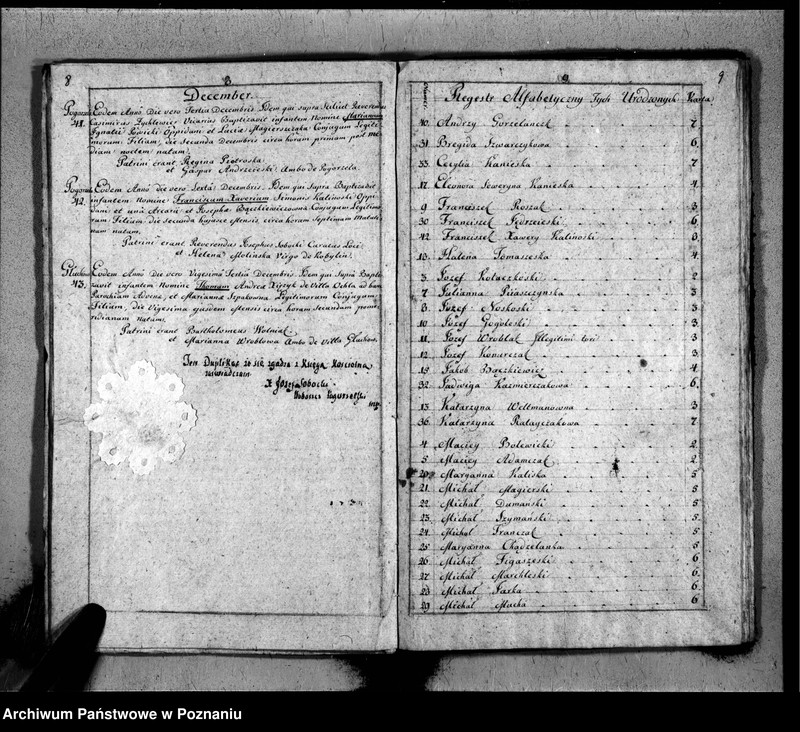 8
8
December.
Pogorzel Eodem Anno Die vero Tertia Decembris Idem qui supra scilicet Reverendus
41. Casimirus Zychlewicz Vicarius Baptizavit infantem Nomine Mariannam
Ignatii Oppidani et Lucia Magierszczaka Conjugum Legiti-
morum Filiam, die Secunda Decembris circa horam primam post me-
diam noctem natam.
Patrini erant Regina Piotroska
et Gaspar Andrzeieski Ambo de Pogorzela
Pogorzel Eodem Anno die vero Sexta Decembris Idem qui Supra Baptizavit
42. infantem Nomine Franciscum Xaverium Simonis Kalinoski Oppi-
dani et Josepha Bączkiewiczowna Conjugum Legitimo-
rum Filium die Secunda hujusce Mensis circa horam Septimam Matuti-
nam natum.
Patrini erant Reverendus Josephus Sobocki Curatus Loci
et Helena Molinska Virgo de Kobylin.
Gluchow Eodem Anno die vero Vigesima Tertia Decembris Idem qui Supra Bapti-
43. zavit infantem Nomine Thomam Andrea de Villa Ochla ad hanc
Parochiam Advena, et Marianna Szpakowna Legitimorum Conjugum
Filium, die Vigesima ejusdem Mensis circa horam Secundam pome-
ridianam natum.
Patrini erant Bartholomeus Wolniak
et Marianna Wroblowa Ambo de Villa Gluchow.
Ten Duplikat że się zgadza z Księgą Kościelną
zaświadczam
X Jozef Sobocki
9
9
Numer Regestr Alfabetyczny Tych Urodzonych Karta
40. Andrzy Gorzelanczk 7
31 Bregida Szwarczykowa 6
33 Cecylia Kanieska 7
17 Eleonora Seweryna Kanieska 4
9 Franciszek Roszak 3
30 Franciszek Jędrzeieski 6
42 Franciszek Xawery Kalinoski 8
13 Halena Tomaszeska 4
3 Jozef Kolaczkoski 2
7 Julianna Ruszczynska 3
8 Jozef Noskoski 3
10 Jozef Gogoleski 3
11 Jozef Wroblak Illegitimi tori 3
12 Jozef Konarczak 3
15 Jakob Bączkiewicz 4
32 Jadwiga Kazmierczakowa 6
13 Katarzyna Weltmanowna 3
36 Katarzyna Ratayczakowa 7
4 Maciey Bolewicki 2
5 Maciey Adamczak 2
20 Maryanna Kaliska 5
21 Michał Magierski 5
22 Michał Dumański 5
23 Michał Szymański 5
24 Michał Franczak 5
25 Maryanna Chądzelanka 5
26 Michał Figaszeski 6
27 Michał Marchleski 6
28 Michał Farka 6
29 Michał Macka 6
Archiwum Państwowe w Poznaniu